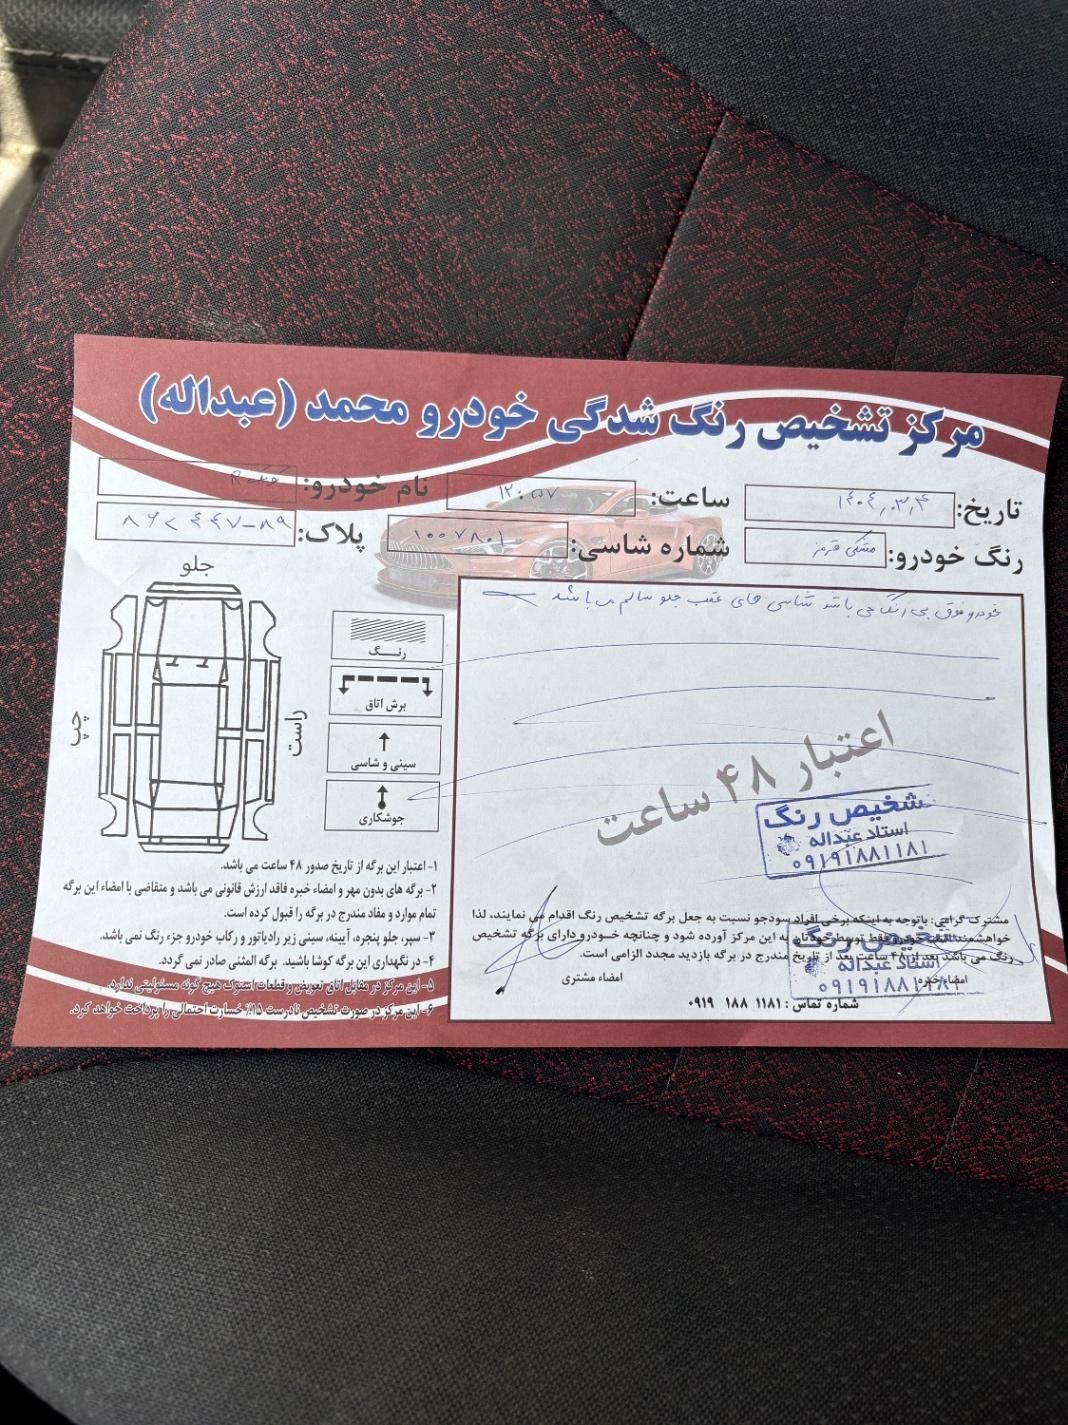 مرکز تشخیص رنگ شدگی خودرو محمد (عبداله)
تاریخ: ۱۴۰۴,۰۳,۴
ساعت: ۱۲:۵۷
نام خودرو: R
رنگ خودرو: مشکی قرمز
شماره شاسی: ۱۰۰۷۸۰۱
پلاک: ۴۴۷-۸۹
خودرو فوق بی رنگ می باشد شاسی های عقب جلو سالم می باشد
جلو
چپ
راست
رنگ
برش اتاق
سینی و شاسی
جوشکاری
اعتبار ۴۸ ساعت
تشخیص رنگ
استاد عبداله
۰۹۱۹۱۸۸۱۱۸۱
۱- اعتبار این برگه از تاریخ صدور ۴۸ ساعت می باشد.
۲- برگه های بدون مهر و امضاء خبره فاقد ارزش قانونی می باشد و متقاضی با امضاء این برگه
تمام موارد و مفاد مندرج در برگه را قبول کرده است.
۳- سپر، جلو پنجره، آیینه، سینی زیر رادیاتور و رکاب خودرو جزء رنگ نمی باشد.
۴- در نگهداری این برگه کوشا باشید. برگه المثنی صادر نمی گردد.
۵- این مرکز در مقابل اتاق تعویض و قطعات استوک هیچ گونه مسئولیتی ندارد.
۶- این مرکز در صورت تشخیص نادرست ۱۵٪ خسارت احتمالی را پرداخت خواهد کرد.
مشترک گرامی: باتوجه به اینکه برخی افراد سودجو نسبت به جعل برگه تشخیص رنگ اقدام می نمایند، لذا
خواهشمند است خودرو فقط توسط خودتان به این مرکز آورده شود و چنانچه خودرو دارای برگه تشخیص
رنگ می باشد بعد از ۴۸ ساعت بعد از تاریخ مندرج در برگه بازدید مجدد الزامی است.
امضاء خبره
امضاء مشتری
تشخیص رنگ
استاد عبداله
۰۹۱۹۱۸۸۱۱۸۱
شماره تماس: ۱۱۸۱ ۱۸۸ ۰۹۱۹